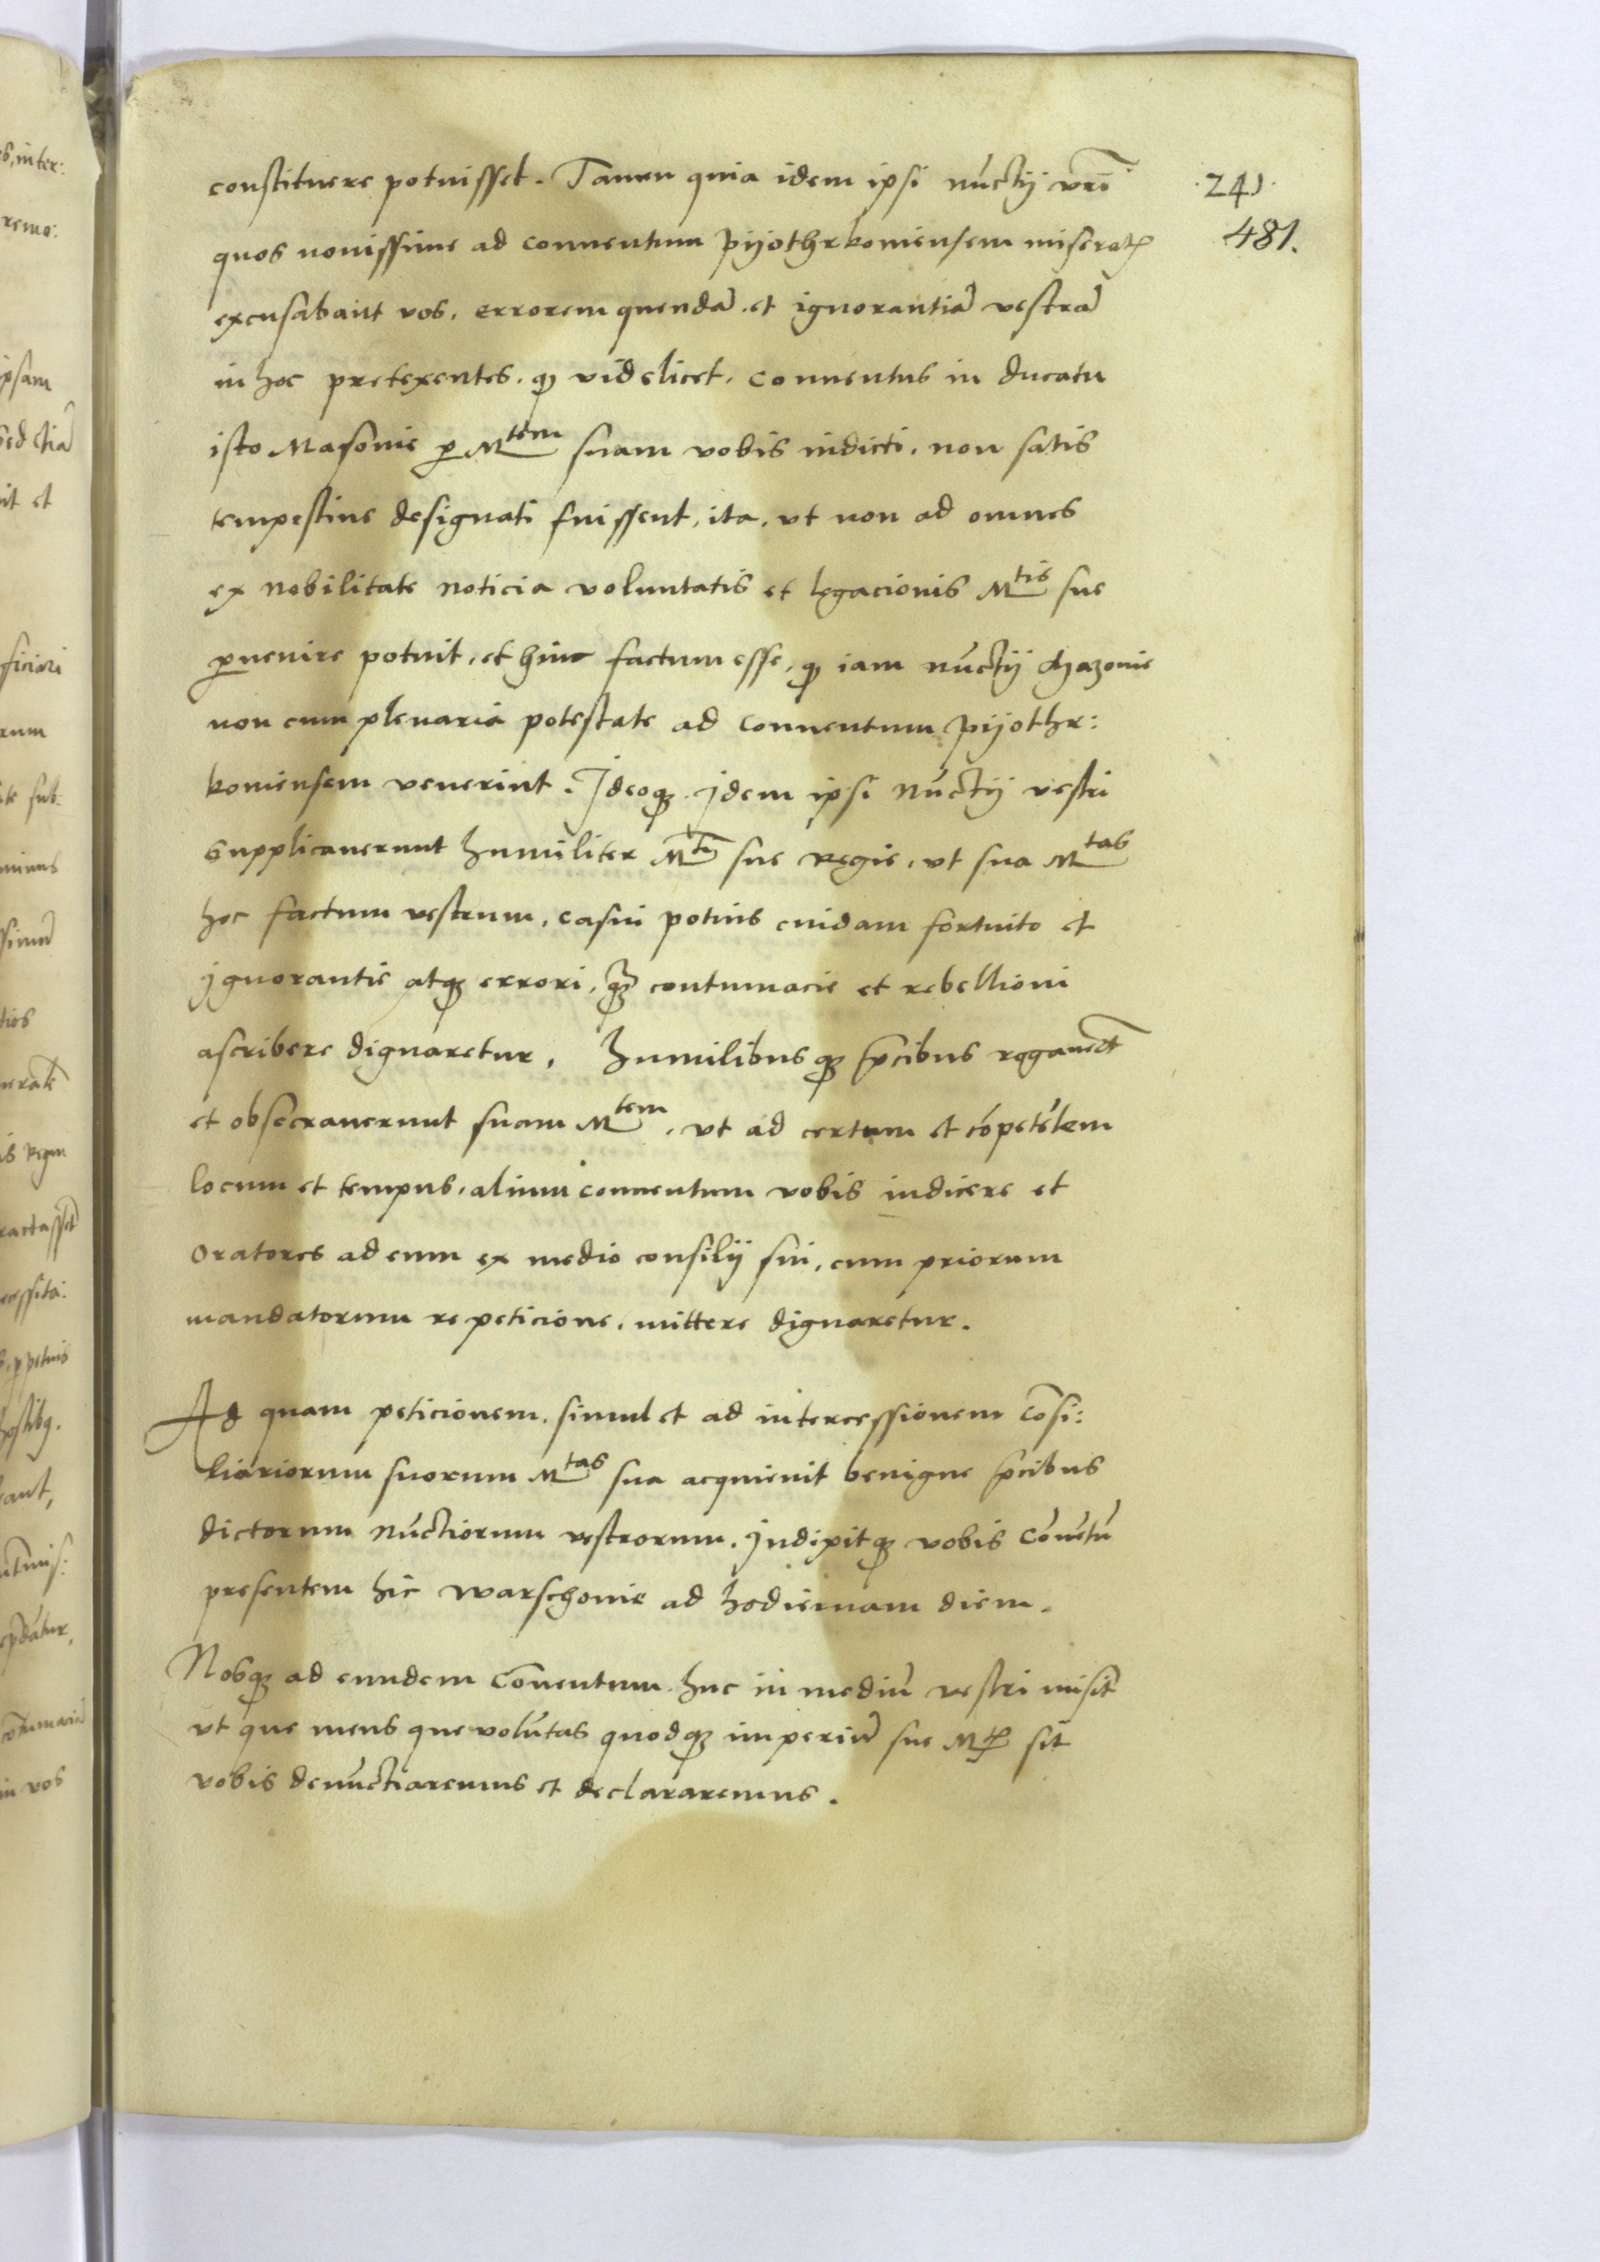 constituere potuisset. Tamen quia idem ipsi nu̅ctij vr̅i
·241·
quos nouissime ad conuentum pijothrkouiensem miserat[is]
481.
excusabant vos, errorem quenda̅ et ignorantia̅ vestra̅
in hoc pretexentes, qꝫ videlicet, conuentus in ducatu
isto Masouie ꝑ M^tem suam vobis indicti, non satis
tempestiue designati fuissent, ita, vt non ad omnes
ex nobilitate noticia voluntatis et legacionis M^tis sue
ꝑuenire potuit, et hinc factum esse, qꝫ iam nu̅ctij Mazouie
non cum plenaria potestate ad conuentum pijothr:
kouiensem venerint. Ideoqꝫ idem ipsi nu̅ctij vestri
supplicauerunt humiliter M^ti sue Regie, vt sua M^tas
hoc factum vestrum, casui potius cuidam fortuito et
ignorantie atqꝫ errori, qꝫ̅ contumacie et rebellioni
ascribere dignaretur. Humilibusqꝫ p̅cibus rogaueru̅t
et obsecrauerunt suam M^tem, vt ad certum et co̅pete̅tem
locum et tempus, alium conuentum vobis indicere et
oratores ad eum ex medio consilij sui, cum priorum
mandatorum repeticione, mittere dignaretur.
Ad quam peticionem, simul et ad intercessionem co̅si:
liariorum suorum M^tas sua acquieuit benigne p̅cibus
dictorum nu̅ctiorum vestrorum. Indixitqꝫ vobis Co̅ue̅tu̅
presentem hic Warschouie ad hodiernam diem.
Nosqꝫ ad eundem Co̅uentum huc in mediu̅ vestri misit
vt que mens que volu̅tas quodqꝫ imperiu̅ sue M^tis sit
vobis denu̅ctiaremus et declararemus.